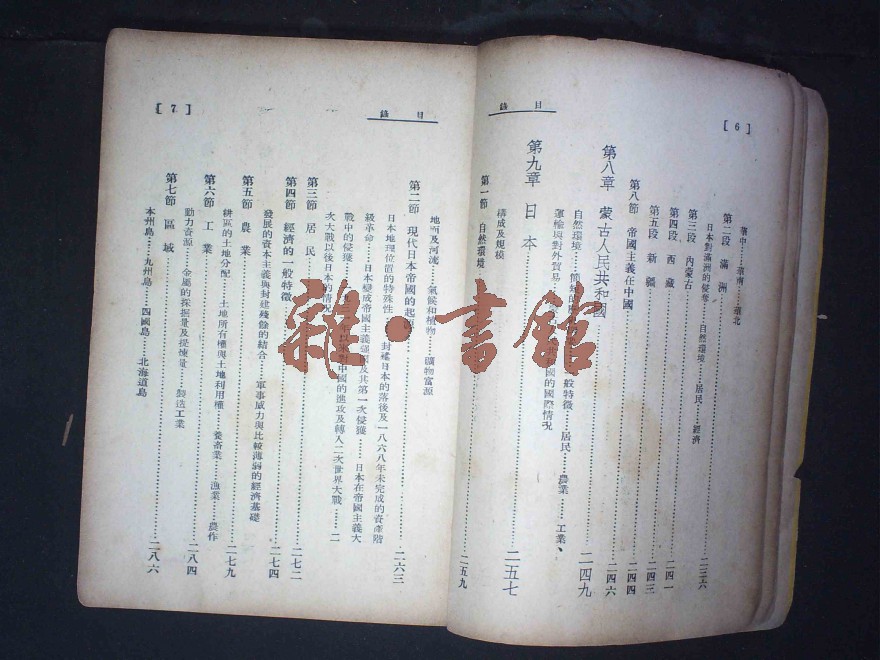 [ 6 ]
華中……華南……華北
第二段 滿 洲……二三六
日本對滿洲的侵奪……自然環境……居民……經濟
第三段 內蒙古……二四一
第四段 西 藏……二四三
第五段 新 疆……二四四
第八節 帝國主義在中國……二四六
第八章 蒙古人民共和國……二四九
自然環境……簡短的……般特徵……居民……農業……工業、
運輸與對外貿易……和國的國際情況
第九章 日 本……二五七
構成及規模
第一節 自然環境……二五九
目 錄
目 錄
[ 7 ]
地面及河流……氣候和植物……礦物富源
第二節 現代日本帝國的起源……二六三
日本地理位置的特殊性……封建日本的落後及一八六八年未完成的資產階
級革命……日本變成帝國主義強國及其第一次侵獲……日本在帝國主義大
戰中的侵獲……年以來對中國的進攻及轉入二次世界大戰……二
次大戰以後日本的情況
第三節 居 民……二七二
第四節 經濟的一般特徵……二七四
發展的資本主義與封建殘餘的結合……軍事威力與比較薄弱的經濟基礎
第五節 農 業……二七九
耕區的土地分配……土地所有權與土地利用權……養畜業……漁業……農作
第六節 工 業……二八四
動力資源……金屬的採掘量及提煉量……製造工業
第七節 區 域……二八六
本州島……九州島……四國島……北海道島
雜·書館